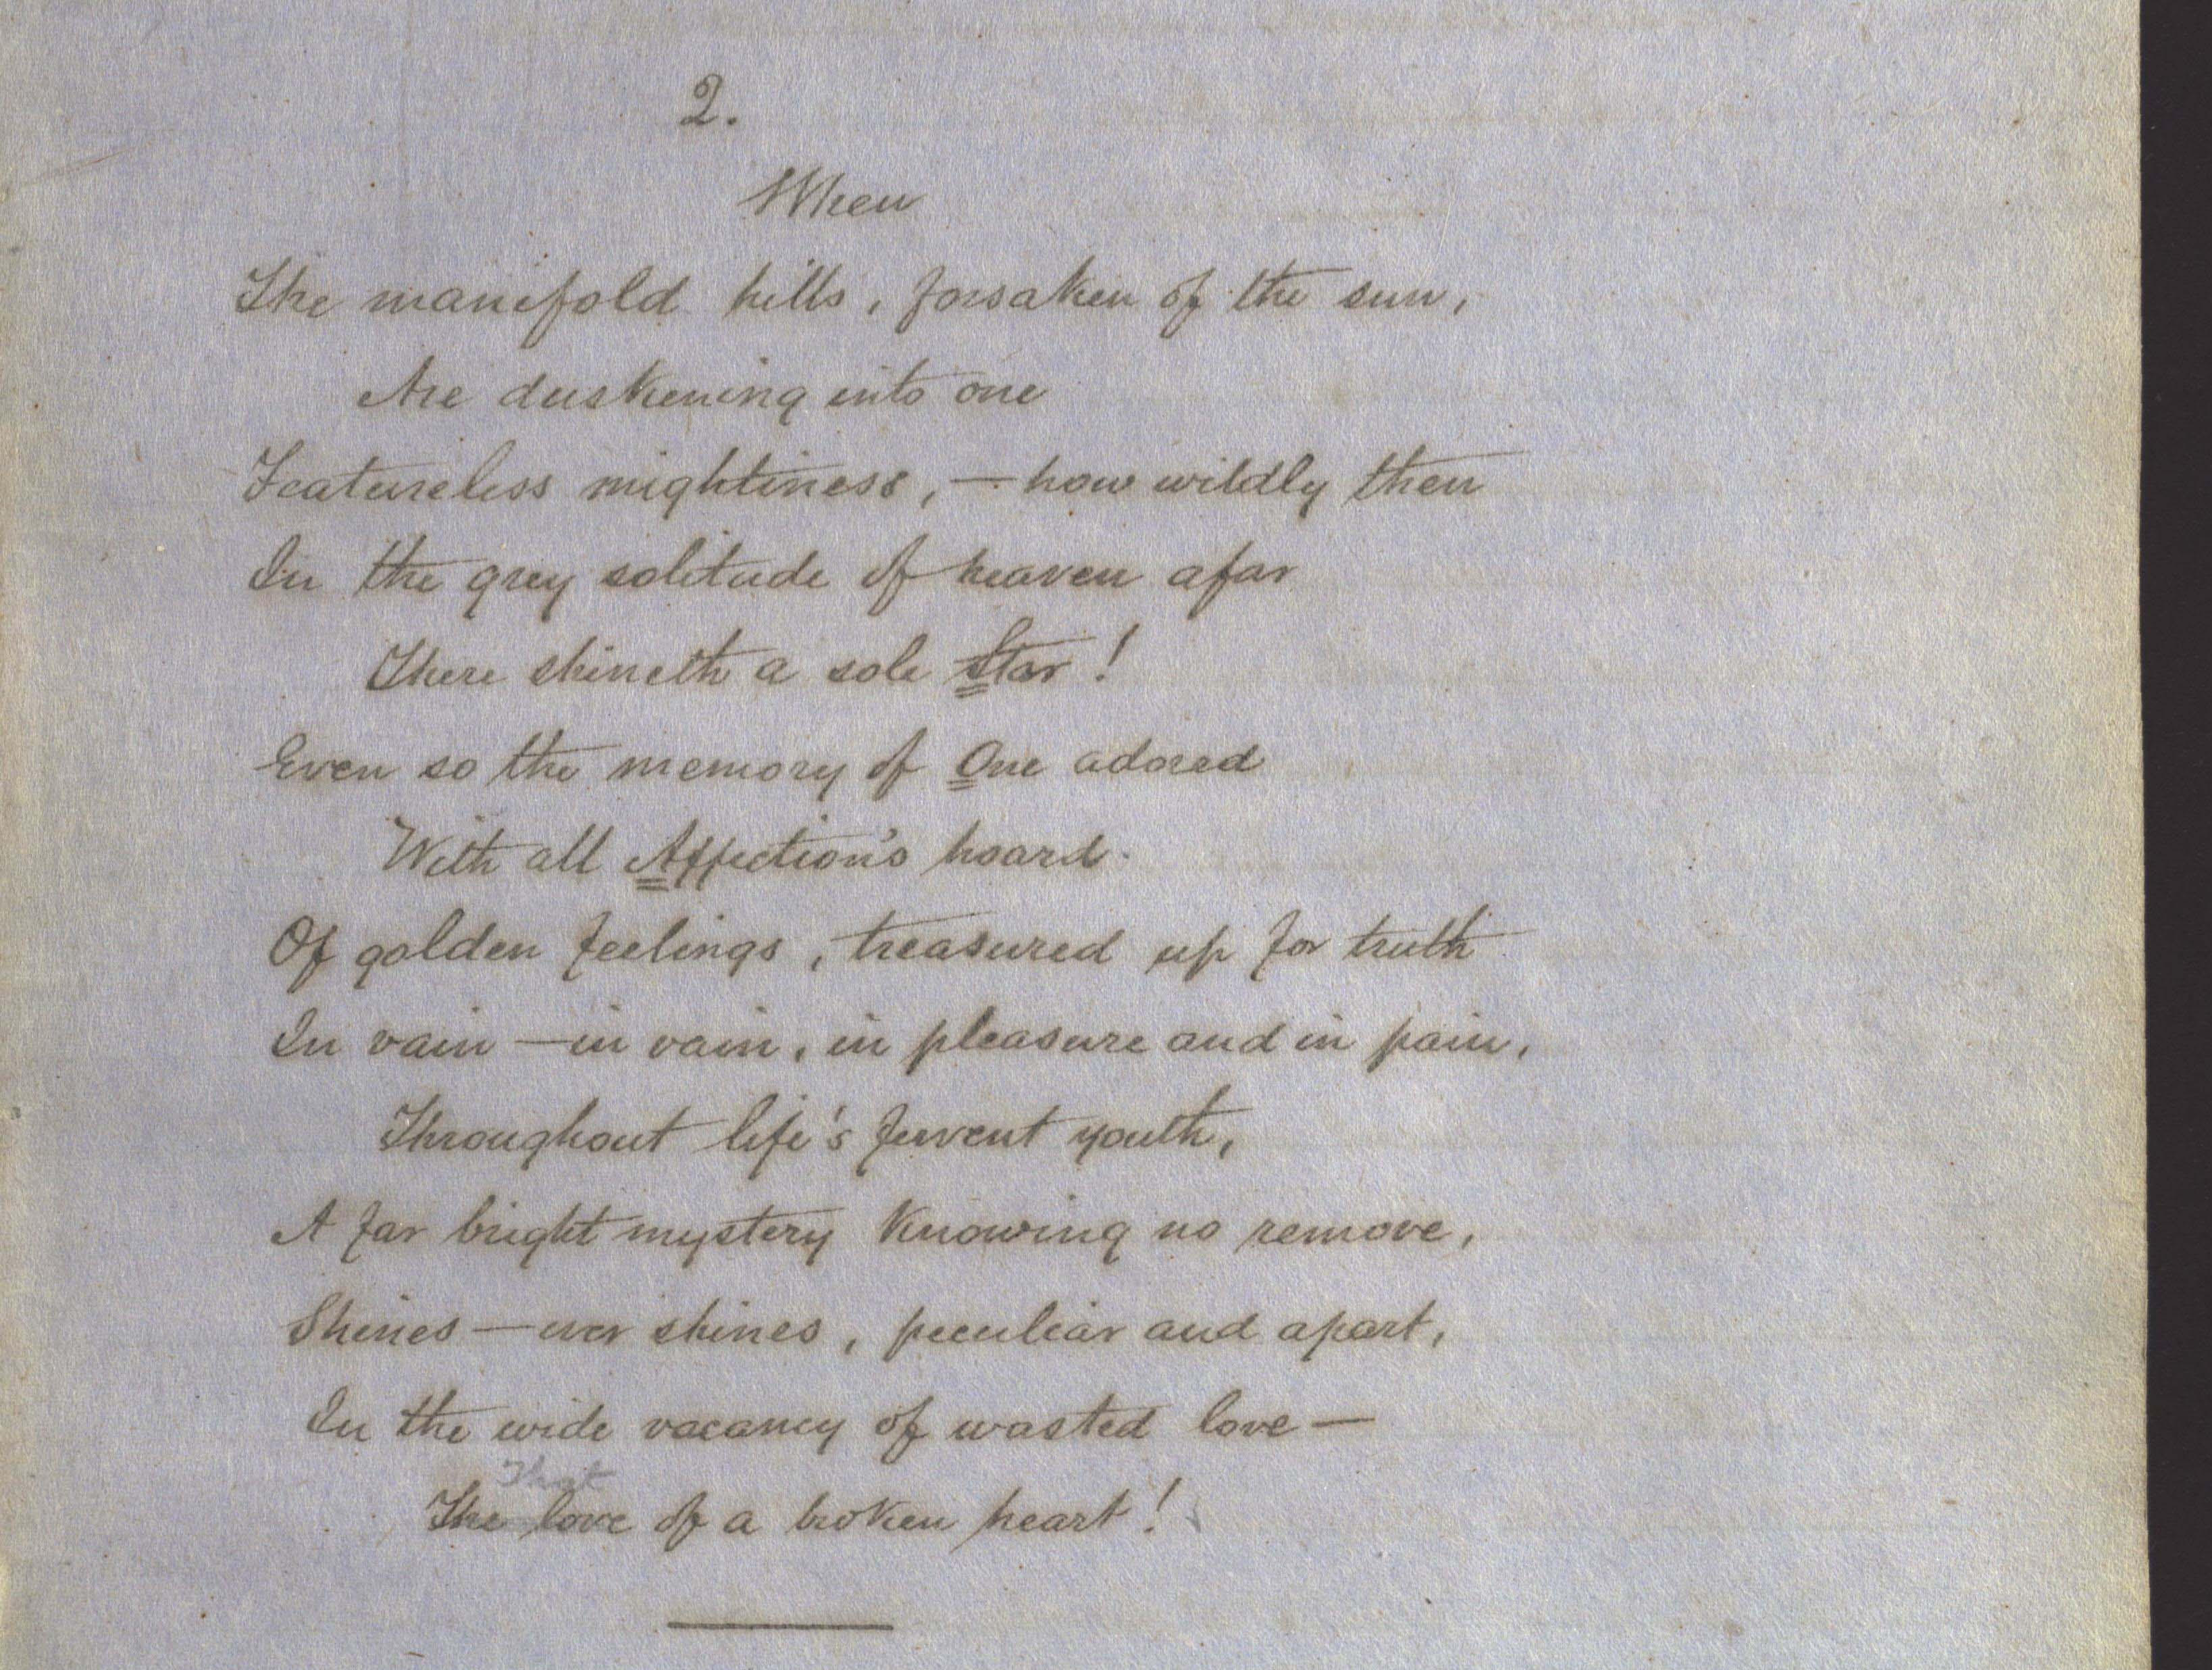 2.
When
The manifold hills, forsaken of the sun,
Are duskening into one
Featureless mightiness, — how wildly then
In the grey solitude of heaven afar
There shineth a sole Star!
Even so the memory of One adored
With all Affection's hoard
Of golden feelings, treasured up for truth
In vain — in vain, in pleasure and in pain,
Throughout life's fervent youth,
A far bright mystery knowing no remove,
Shines — ever shines, peculiar and apart,
In the wide vacancy of wasted love —
That
The love of a broken heart!